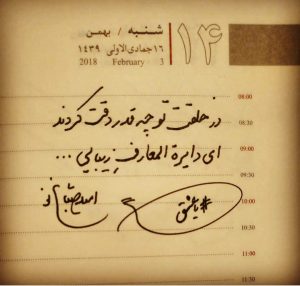 ۱۴
شنبه / بهمن
۱۶ جمادی الاولی ۱۴۳۹
2018 February 3
08:00
در خلقت تو چه قدر دقت کردند
08:30
ای دایرة المعارف زیبایی ...
09:00
09:30
10:00
#یا عشق
10:30
11:00
11:30